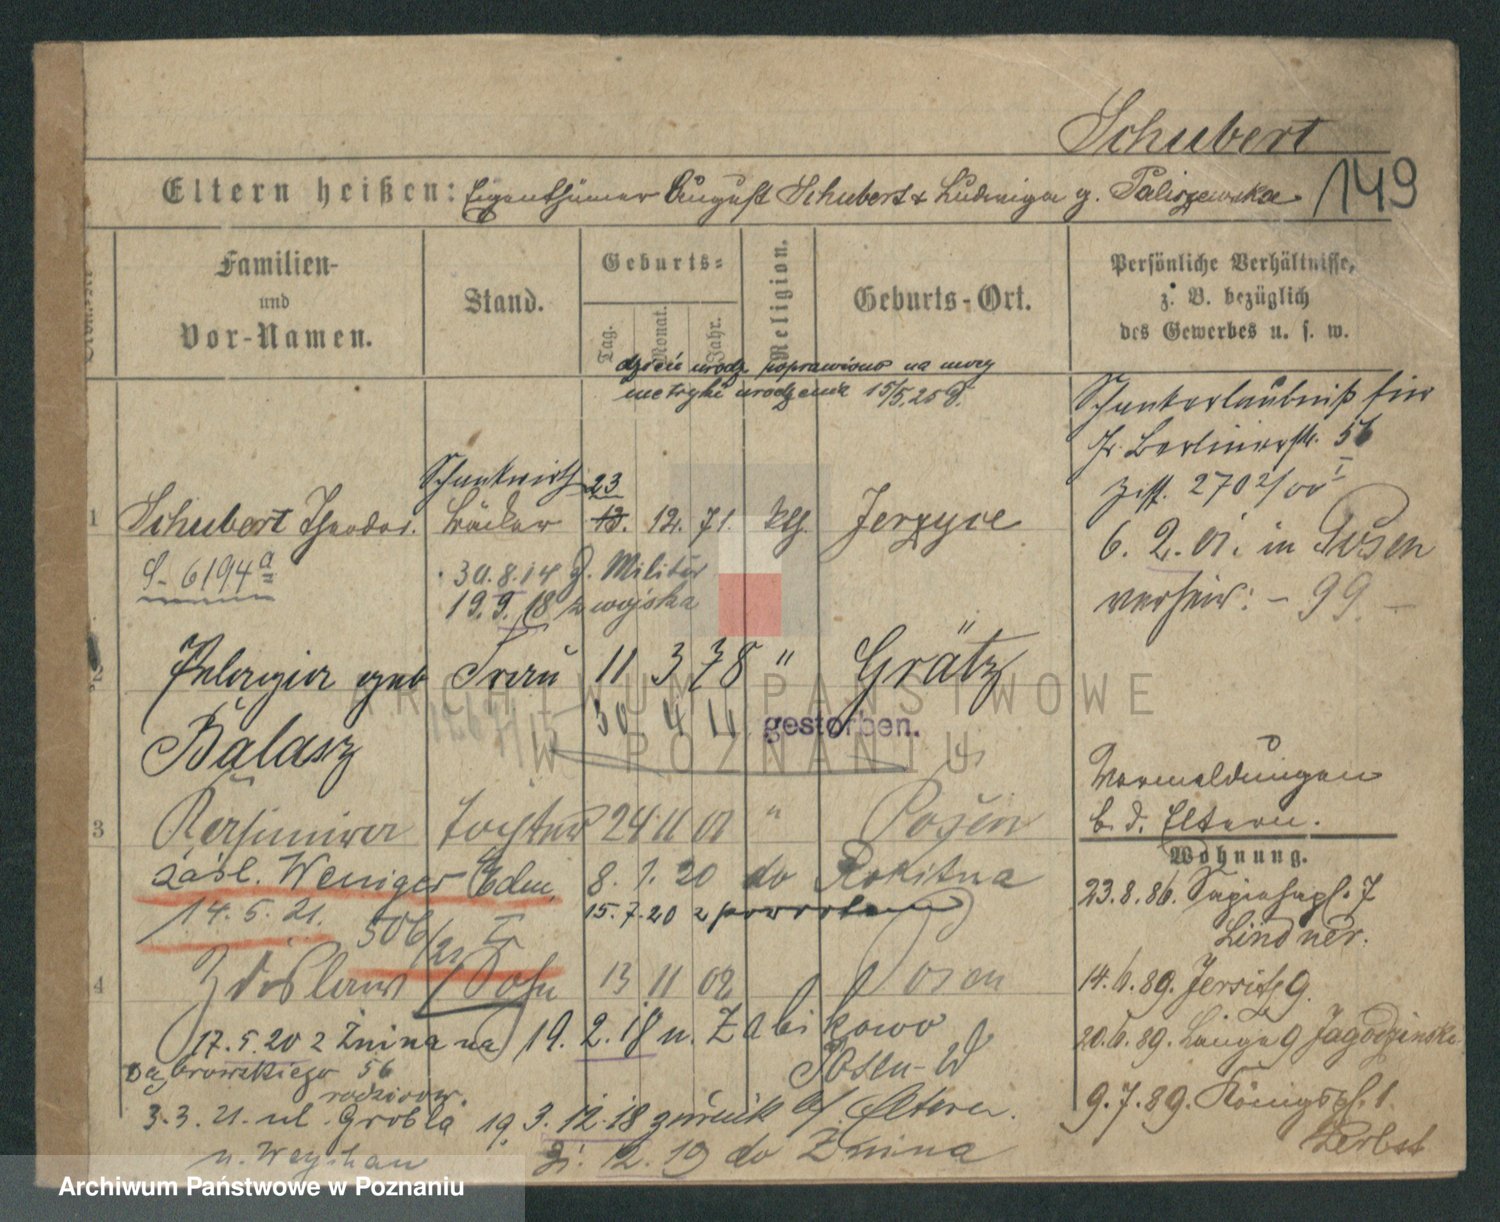 Schubert
149
Eltern heißen: Eigenthümer August Schubert & Ludwiga g. Paliszewska
Familien- und Vor-Namen.
Stand.
Geburts-
Tag. Monat. Jahr.
Religion.
Geburts-Ort.
Persönliche Verhältnisse, z. B. bezüglich des Gewerbes u. s. w.
dzień urodz poprawiono na mocy
metryki urodzenia 15/5.25
Schankerlaubniß für
Berlinerstr. 56
270 2/00
6. 2. 01. in Posen
99
Schankwirth 23
1 Schubert Theodor. Bäcker 13. 12. 71. kth. Jerzyce
S. 6194a
30.8.14 z. Militär
19.9.18 z wojska
2 Pelagia geb Frau 11 3 78 " Grätz
Balasz
30 4 11 gestorben.
3 Kasimira Tochter 24 11 01 " Posen
zaśl. Weniger Edm. 8. 1. 20 do Rokitna
14.5.21. 506/21 I 15.7.20 z powrotem
4 Zdislaus / Sohn 13 11 02 Posen
17.5.20 z Żnina na 19. 2. 18 n. Zabikowo
Dąbrowskiego 56 Posen-W
rodziców.
3.3.21. ul. Grobla 19. 3. 12. 18 zurück b/ Eltern.
12. 19 do Żnina
Vormeldungen
b. d. Eltern.
Wohnung.
23.8.86. Sapiehapl. 7
Lindner.
14.6.89. Jersitz 9.
20.6.89. Lange 9 Jagodzinski
9.7.89. Königspl. 1.
Zerbst
ARCHIWUM PAŃSTWOWE
W POZNANIU
Archiwum Państwowe w Poznaniu